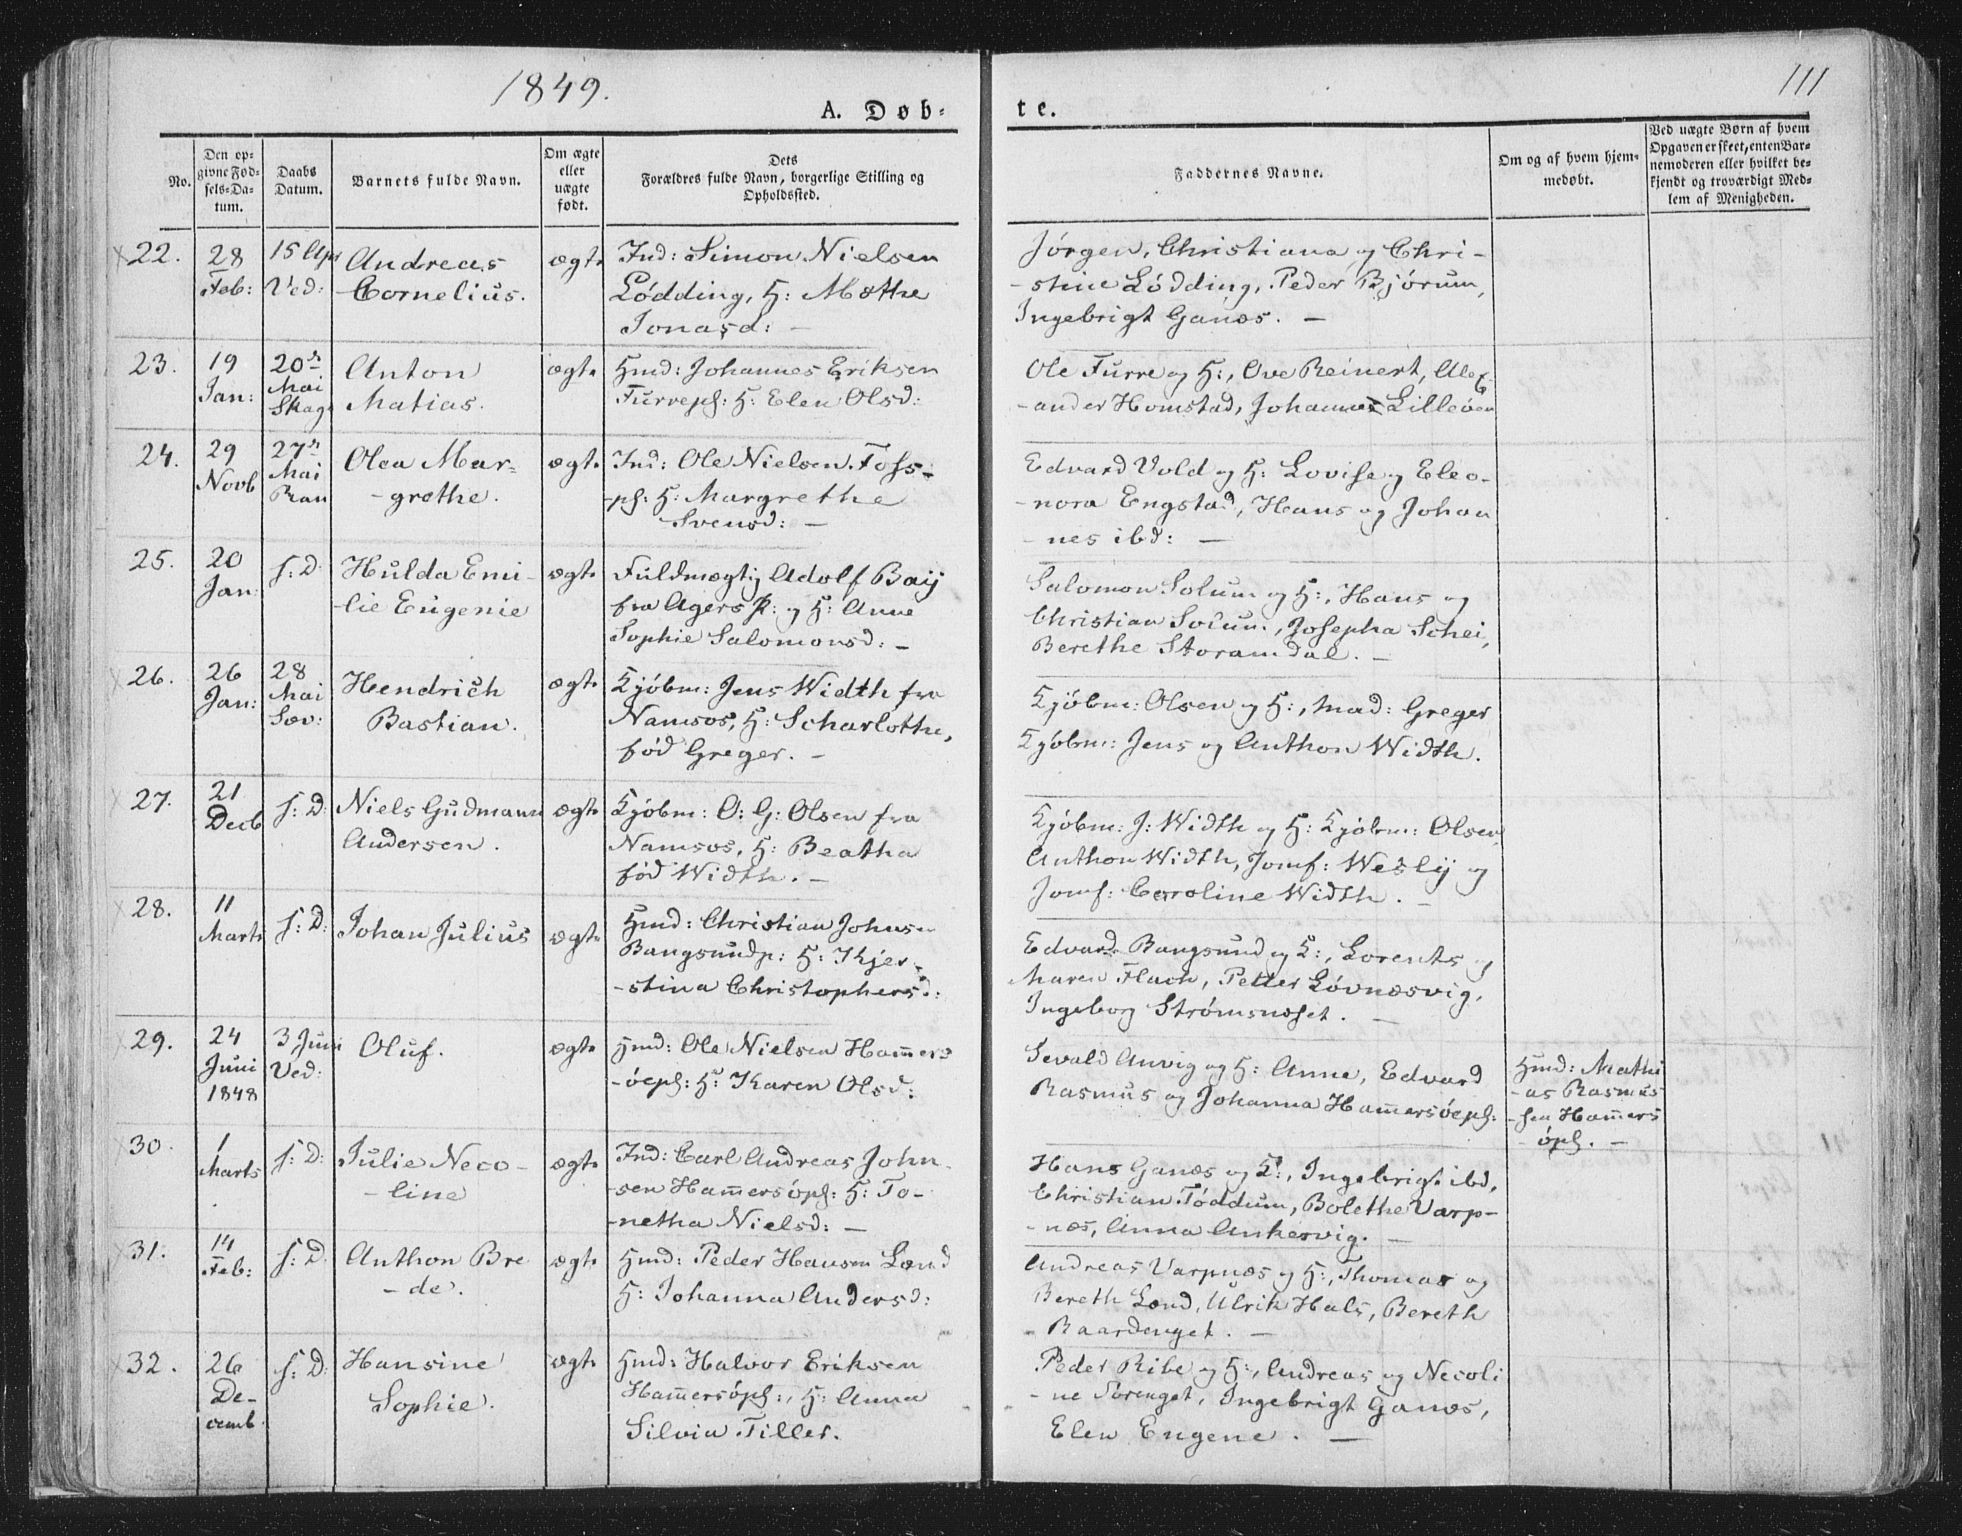 1849.
111
A. Døb-
te.
No.
Den op-
givne Fød-
sels-Da-
tum.
Daabs
Datum.
Barnets fulde Navn.
Om ægte
eller
uægte
født.
Dets
Forældres fulde Navn, borgerlige Stilling og
Opholdssted.
Faddernes Navne.
Om og af hvem hjem-
medøbt.
Ved uægte Børn af hvem
Opgaven er skeet, enten Bar-
nemoderen eller hvilket be-
kjendt og troværdigt Med-
lem af Menigheden.
22.
28
Feb:
15 Apr
Ved:
Andreas
Cornelius.
ægte
Ind: Simon Nielsen
Lødding, H: Mæthe
Jonasd: -
Jørgen, Christiana og Chri-
-stine Lødding, Peder Bjørum,
Ingebrigt Ganæs. -
23.
19
Jan:
20de
Mai
Skag
Anton
Matias.
ægte
Hmd: Johannes Eriksen
Furrepl: H: Elen Olsd:
Ole Furre og H:, Ove Reinert, Alex-
-ander Homstad, Johannes Lilleøen
24.
29
Novb
27de
Mai
Ran
Olea Mar-
-grethe.
ægte
Ind: Ole Nielsen Foss-
-pl: H: Margrethe
Svensd: -
Edvard Vold og H: Lovise og Eleo-
-nora Engstad, Hans og Johan
-nes ibd: -
25.
20
Jan:
s: D:
Hulda Emi-
-lie Eugenie
ægte
Fuldmægtig Adolf Baij
fra Agers P: og H: Anne
Sophie Salomonsd: -
Salomon Solum og H:, Hans og
Christian Solum, Josepha Schei,
Berethe Storamdal. -
26.
26
Jan:
28
Mai
Sæv:
Hendrich
Bastian.
ægte
Kjøbm: Jens Width fra
Namsos, H: Scharlothe,
fød Greger. -
Kjøbm: Olsen og H:, Mad: Greger
Kjøbm: Jens og Anthon Width.
27.
21
Decb
s: D:
Niels Gudmann
Andersen.
ægte
Kjøbm: O: G: Olsen fra
Namsos, H: Beatha
fød Width. -
Kjøbm: J: Width og H: Kjøbm: Olsen,
Anthon Width, Jomf: Weslij og
Jomf: Caroline Width. -
28.
11
Marts
s: D:
Johan Julius
ægte
Hmd: Christian Johnsen
Bangsundp: H: Kjer-
-stina Christophersd:
Edvard Bangsund og K:, Lorents og
Maren Flach, Petter Løvnæsvig,
Ingeborg Strømsnæset. -
29.
24
Juni
1848
3 Juni
Ved:
Oluf.
ægte
Hmd: Ole Nielsen Hammers
-øepl: H: Karen Olsd:
Sevald Anvig og H: Anne, Edvard
Rasmus og Johanna Hammersøepl:
Hmd: Mathi
-as Rasmus
-sen Hammers
-øpl. -
30.
1
Marts
s: D:
Julie Neco-
-line
ægte
Ind: Carl Andreas John-
-sen Hammersøpl: H: To-
-netha Nielsd: -
Hans Ganæs og K:, Ingebrigt ibd,
Christian Føddum, Bolethe Varp-
-næs, Anna Ankervig. -
31.
14
Feb:
s: D.
Anthon Bre
-de.
ægte
Hmd: Peder Hansen Lænd
H: Johanna Andersd:
Andreas Varpnæs og H:, Thomas og
Bereth Lænd, Ulrik Hals, Bereth
Baardenget. -
32.
26
De-
cemb.
s: D:
Hansine
Sophie.
ægte
Hmd: Halvor Eriksen
Hammersøpl:, H: Anna
Silvia Tiller.
Peder Ribe og H:, Andreas og Necoli
-ne Sørenget, Ingebrigt Ganæs,
Elen Engene. -